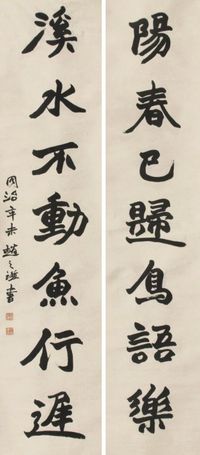 陽春已歸鳥語樂
溪水不動魚行遲
同治辛未趙之謙書